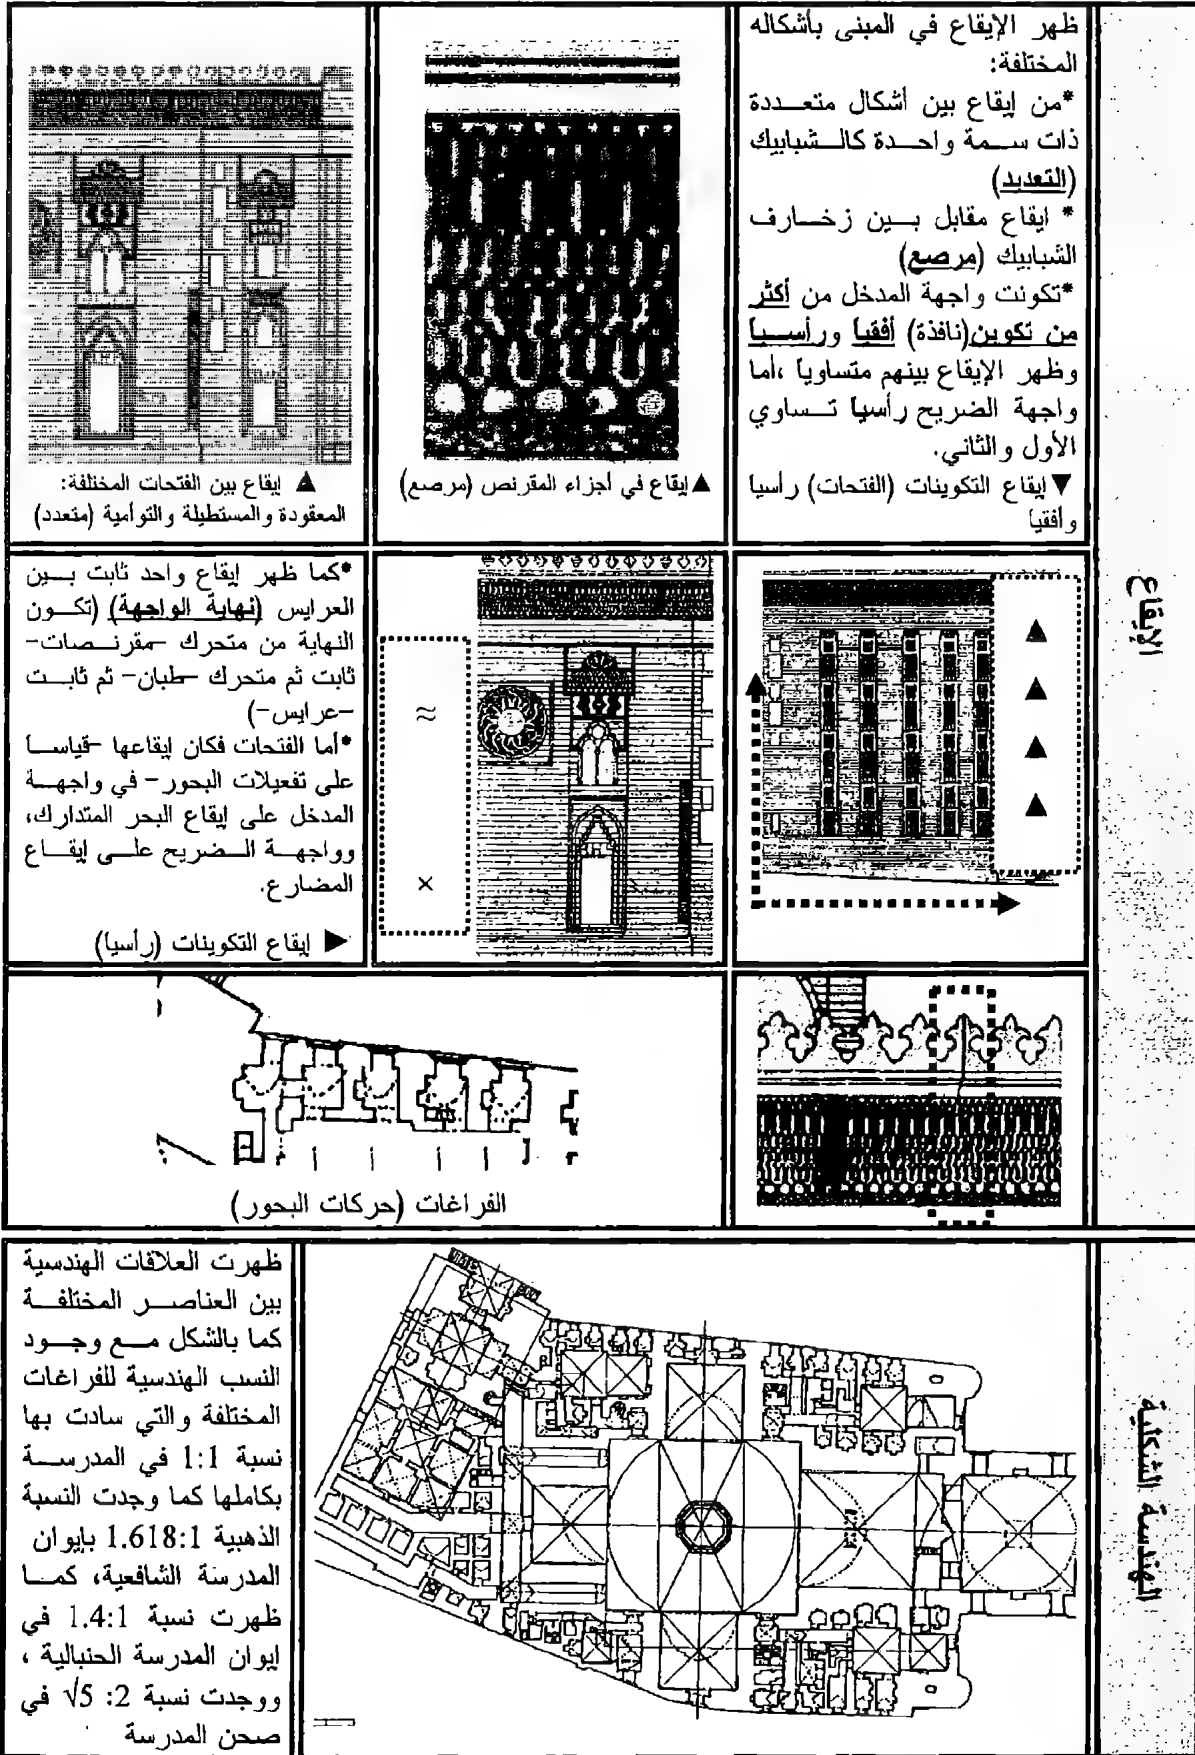 الإيقاع
ظهر الإيقاع في المبنى بأشكاله
المختلفة:
*من إيقاع بين أشكال متعددة
ذات سمة واحدة كالشبابيك
(التعديد)
* ايقاع مقابل بين زخارف
الشبابيك (مرصع)
*تكونت واجهة المدخل من أكثر
من تكوين(نافذة) أفقياً ورأسياً
وظهر الإيقاع بينهم متساوياً ،أما
واجهة الضريح رأسياً تساوي
الأول والثاني.
▼ إيقاع التكوينات (الفتحات) رأسيا
وأفقيا
▲إيقاع في أجزاء المقرنص (مرصع)
▲ إيقاع بين الفتحات المختلفة:
المعقودة والمستطيلة والتوأمية (متعدد)
▲
▲
▲
▲
≈
×
*كما ظهر إيقاع واحد ثابت بين
العرايس (نهاية الواجهة) (تكون
النهاية من متحرك -مقرنصات-
ثابت ثم متحرك -طبان- ثم ثابت
-عرايس-)
*أما الفتحات فكان إيقاعها -قياسا
على تفعيلات البحور- في واجهة
المدخل على إيقاع البحر المتدارك،
وواجهة الضريح على إيقاع
المضارع.
► إيقاع التكوينات (رأسيا)
الفراغات (حركات البحور)
الهندسة الشكلية
ظهرت العلاقات الهندسية
بين العناصر المختلفة
كما بالشكل مع وجود
النسب الهندسية للفراغات
المختلفة والتي سادت بها
نسبة 1:1 في المدرسة
بكاملها كما وجدت النسبة
الذهبية 1.618:1 بإيوان
المدرسة الشافعية، كما
ظهرت نسبة 1.4:1 في
إيوان المدرسة الحنبالية ،
ووجدت نسبة 2: 5√ في
صحن المدرسة